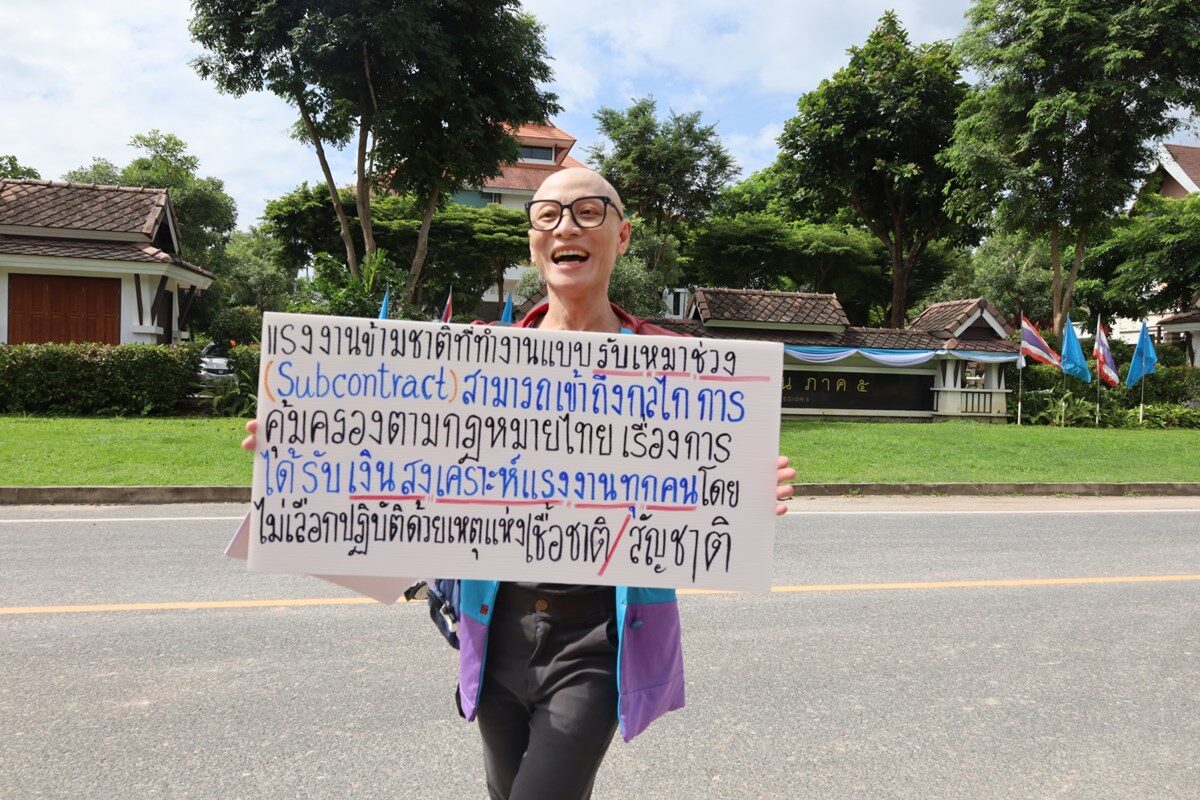 แรงงานข้ามชาติที่ทำงานแบบ รับเหมาช่วง
(Subcontract) สามารถเข้าถึงกลไก การ
คุ้มครองตามกฎหมายไทย เรื่องการ
ได้ รับ เงิน สงเคราะห์แรงงานทุกคน โดย
ไม่เลือกปฏิบัติด้วยเหตุแห่งเชื้อชาติ/สัญชาติ
น ภาค ๕
REGION 5